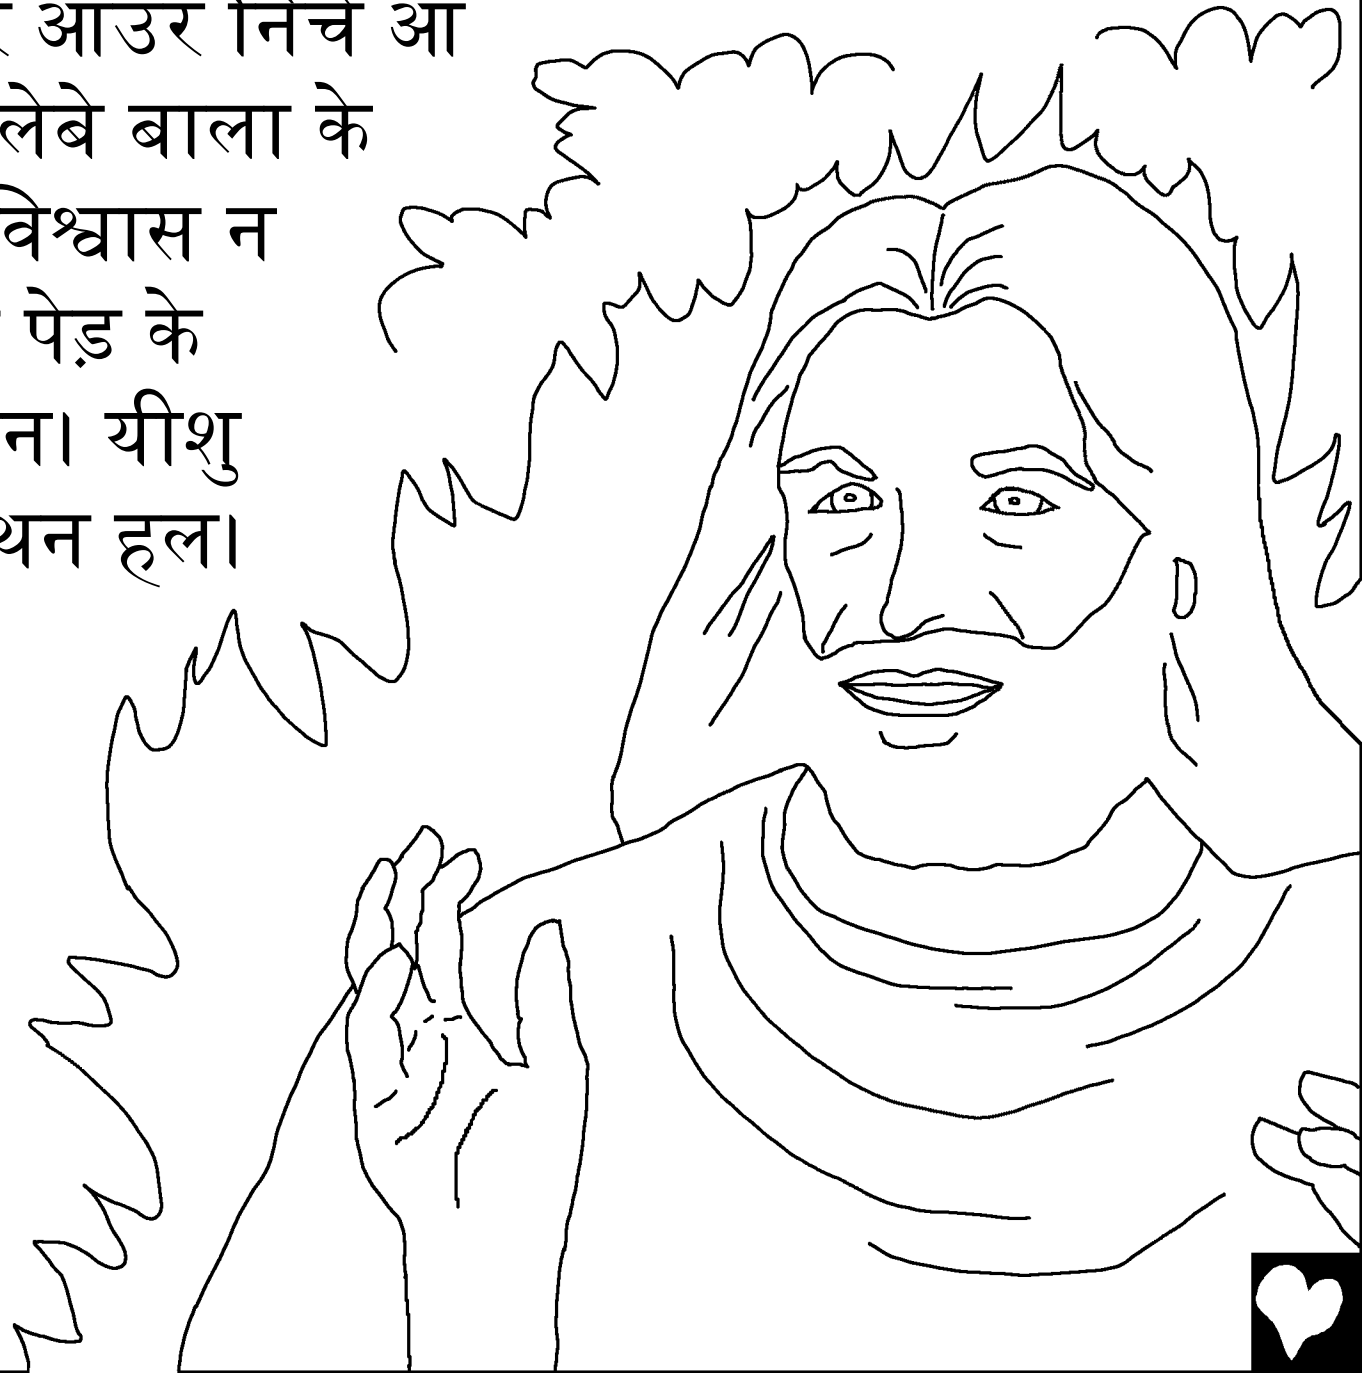 आउर निचे आ
लेबे बाला के
विश्वास न
पेड़ के
न। यीशु
थन हल।